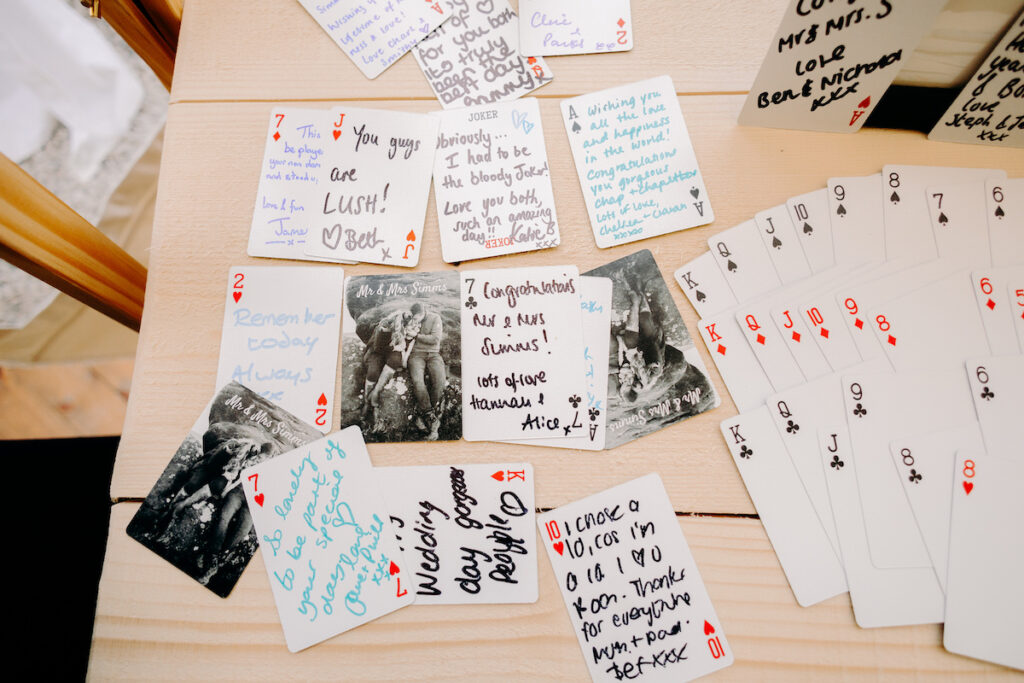 Wishing you
Lifetime of
ness & love!
Love
A
for you both
its truly
been the day
Q
Clare &
2
Congrats
Mr & Mrs. S
Love
Ben & Nichola
xxx
A
love
Steph &
xxx
7
This
be playe
your
love & fun
Jame
x
J
You guys
are
LUSH!
♡ Beth
x
J
JOKER
Obviously...
I had to be
the bloody Joker!
Love you both,
such an amazing
day!! Katie B
xxx
JOKER
A
Wishing you
all the love
and happiness
in the World!
Congratulations
you gorgeous
chap + chapette
Lots of love,
Chelsea + Ciaran
xxxoo
A
2
Remember
today
Always
2
Mr & Mrs Simms
7
Congratulations
Mr & Mrs
Simms!
lots of love
Hannah &
Alice x
7
A
Mr & Mrs Simms
Mr & Mrs Simms
7
So lovely
to be part of
your special
day love
& Phill
xxx
7
K
Wedding
day gorgeous
people
10
I chose a
10, cos I'm
a 10! I ♡ U
Thanks
for everything
Mum + Dad.
Bef xxx
10
K
Q
J
10
9
8
7
6
K
Q
J
10
9
8
6
5
K
Q
J
9
8
6
8